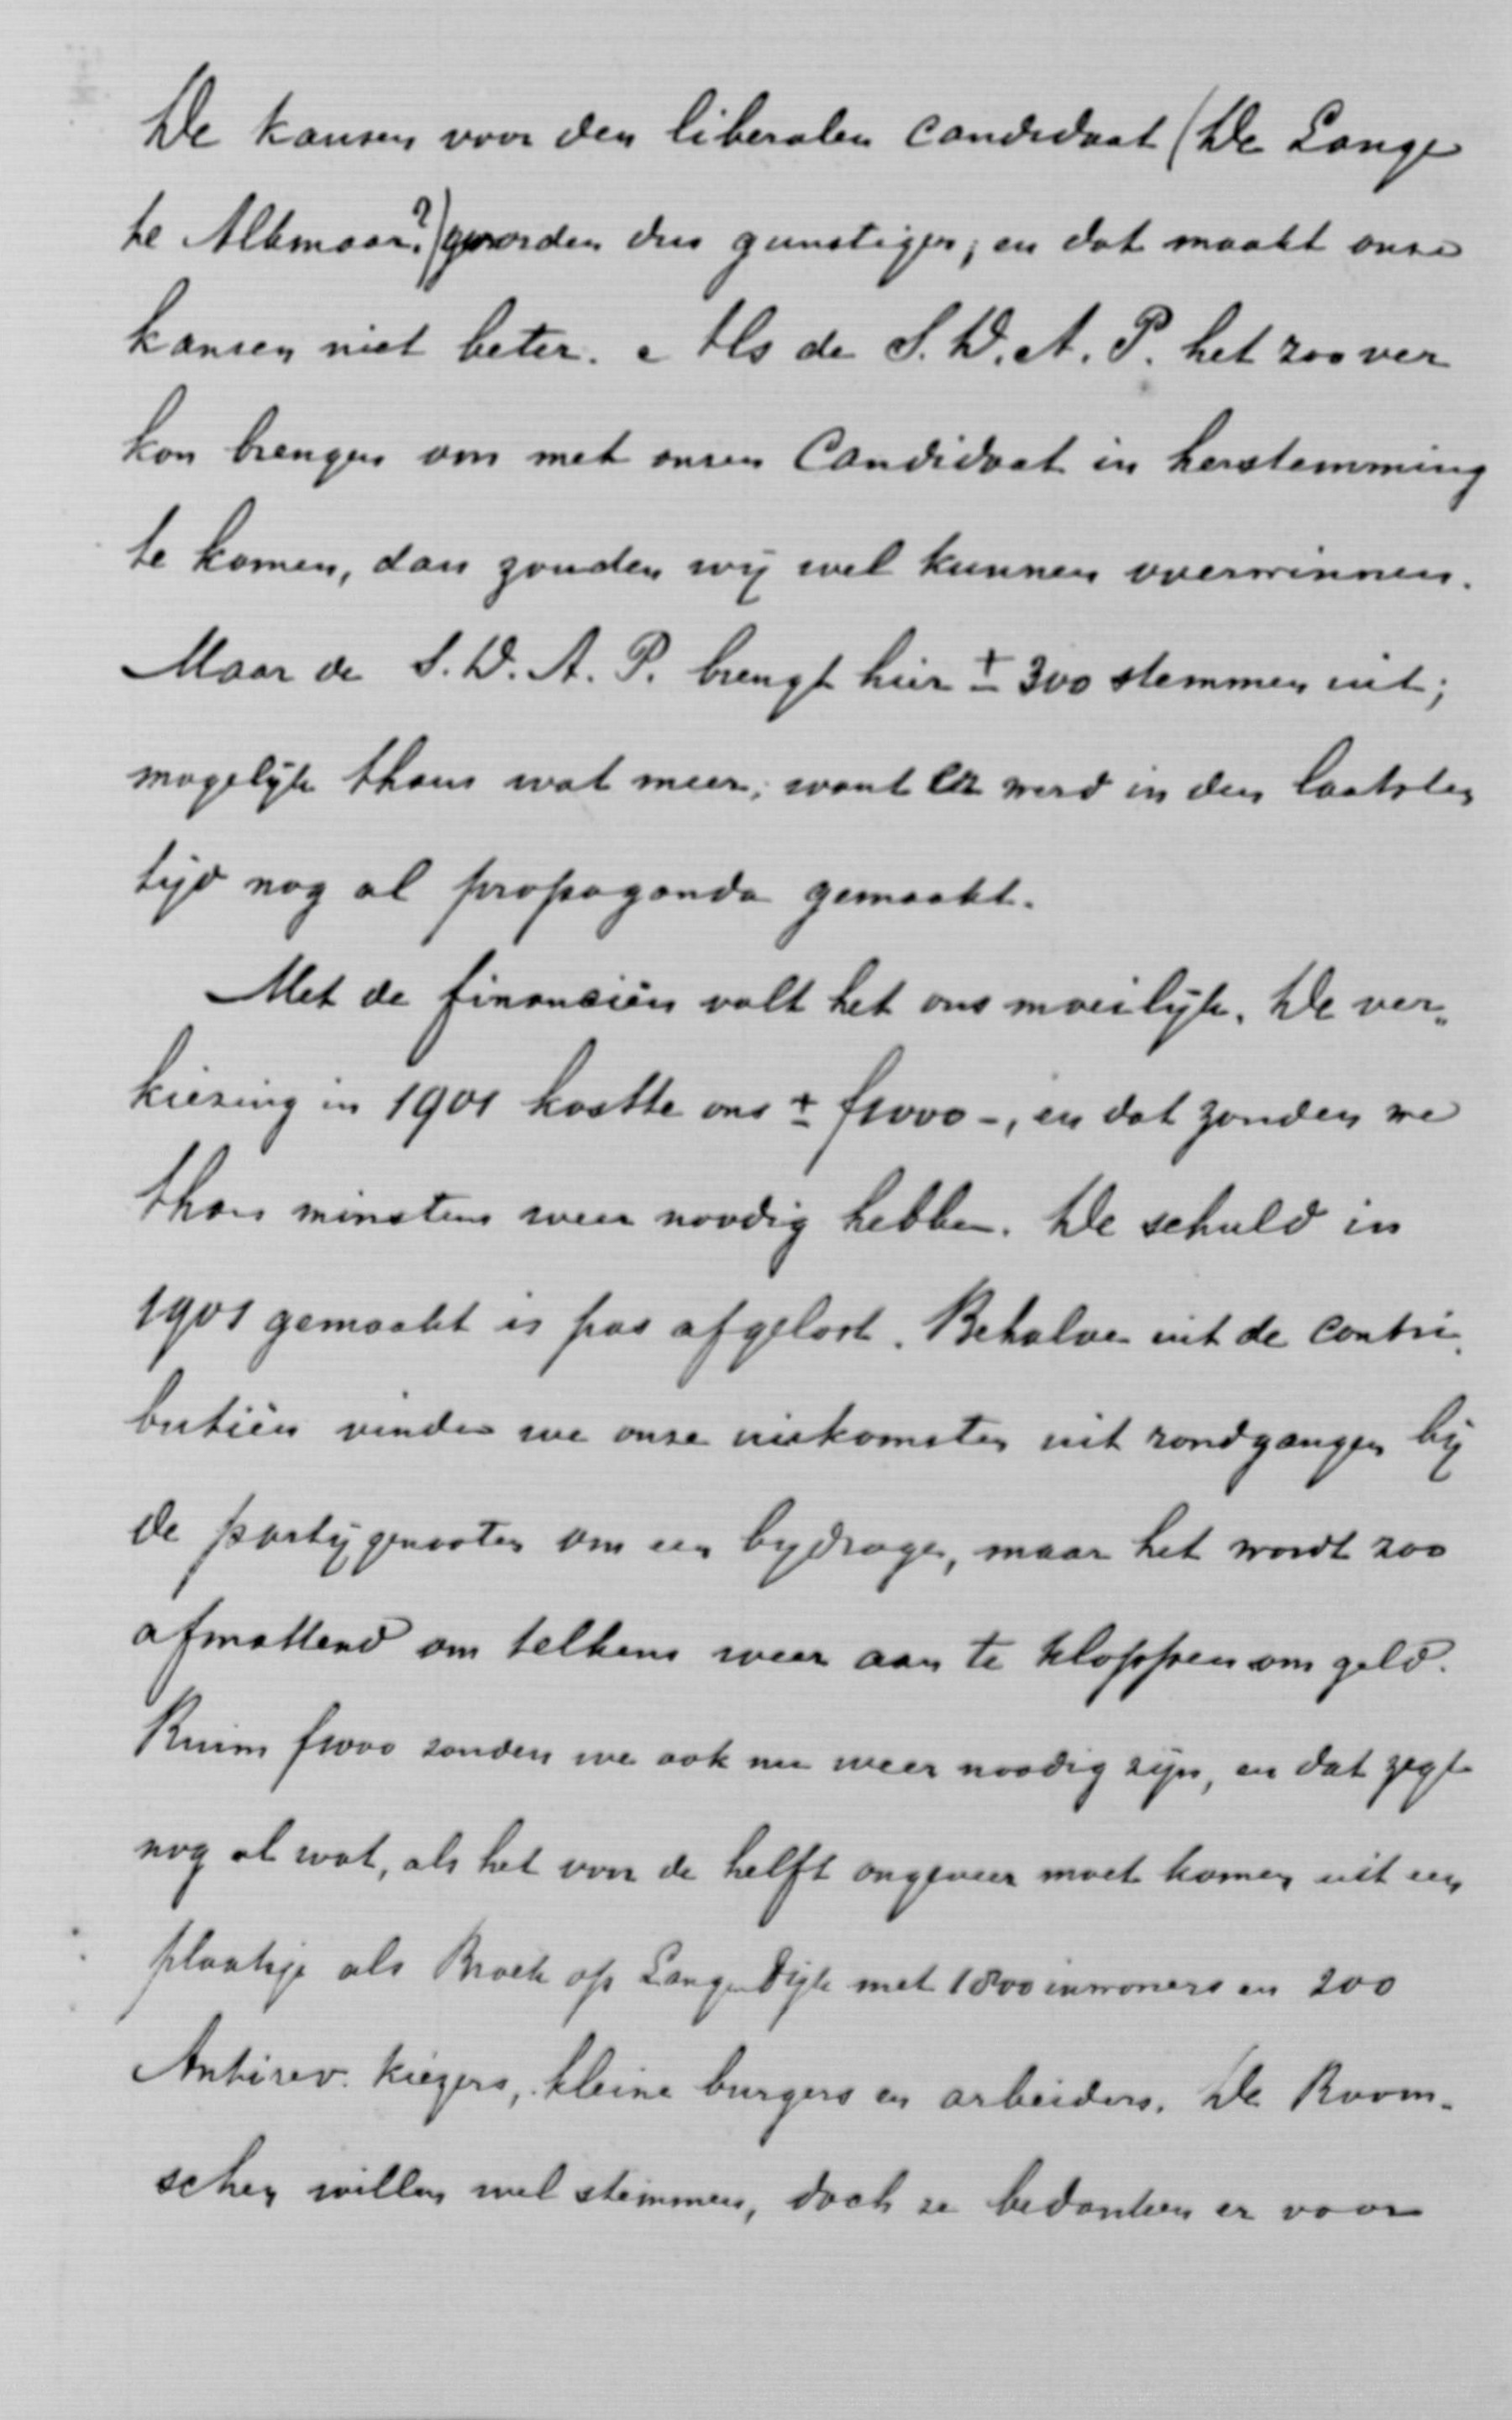 De kansen voor den liberalen candidaat (De Lange
te Alkmaar?) worden dus gunstiger; en dat maakt onze
kansen niet beter. Als de S. D. A. P. het zoo ver
kon brengen om met onzen Candidaat in herstemming
te komen, dan zouden wij wel kunnen overwinnen.
Maar de S. D. A. P. brengt hier ± 300 stemmen uit;
mogelijk thans wat meer; want er werd in den laatsten
tijd nog al propaganda gemaakt.
Met de financiën valt het ons moeilijk. De ver„
kiezing in 1901 kostte ons ± f1000-, en dat zouden we
thans minstens weer noodig hebben. De schuld in
1901 gemaakt is pas afgelost. Behalve uit de contri„
butiën vinden we onze inkomsten uit rondgangen bij
de partijgenooten om een bijdrage, maar het wordt zoo
afmattend om telkens weer aan te kloppen om geld.
Ruim f1000 zouden we ook nu weer noodig zijn, en dat zegt
nog al wat, als het voor de helft ongeveer moet komen uit een
plaatsje als Broek op Langendijk met 1800 inwoners en 200
Antirev. kiezers, kleine burgers en arbeiders. De Room-
schen willen wel stemmen, doch ze bedanken er voor